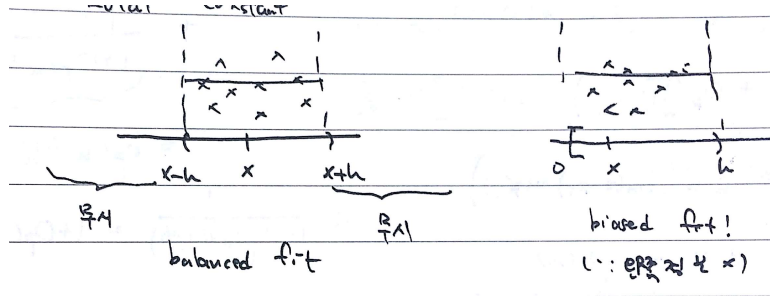 constant
x-h x x+h
무시 무시
balanced fit
0 x h
biased fit!
(∵ 왼쪽 정보 x)